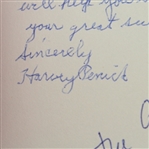 will help you
your great su
Sincerely
Harvey Penick